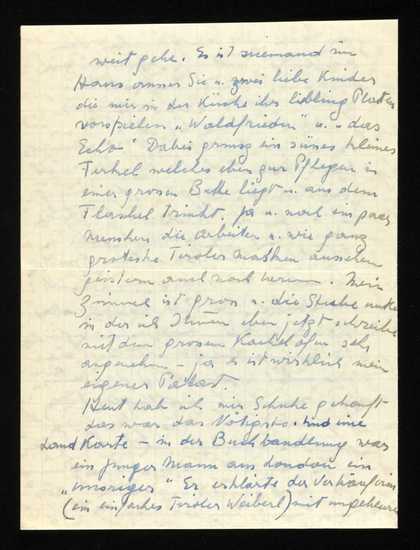 weit gehe. Es ist niemand im
Haus ausser Sie u. zwei liebe Kinder
die mir in der Küche ihre liebling Platten
vorspielen „Waldfrieden" u. „das
Echo" Dabei grunzt ein süsses kleines
Ferkel welches eben zur Pflege in
einer grossen Bette liegt u. aus dem
Flaschel trinkt. Ja u. noch ein paar
menschen die arbeiten u. wie ganz
groteske Tiroler masken aussehen
geistern auch noch herum. Mein
Zimmer ist gross u. die Stube
in der ich Ihnen eben jetzt schreibe
mit dem grossem Kachelofen sehr
angenehm, ja es ist wirklich mein
eigener Palast.
Heut hab ich mir Schuhe gekauft
das war das Nötigste. Und eine
Land Karte – in der Buchhandlung war
ein junger Mann aus London ein
Er erklärte der Verkäuferin
(ein einfaches Tiroler Weiberl) mit ungeheure